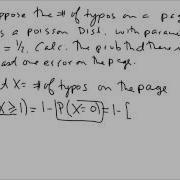 ppose the # of typos on a pag
s a poisson Dist. with parame
= 1/2. Calc. the prob that there i
ast one error on the page.
t X = # of typos on the page
X ≥ 1) = 1 - P(X=0) = 1 - [